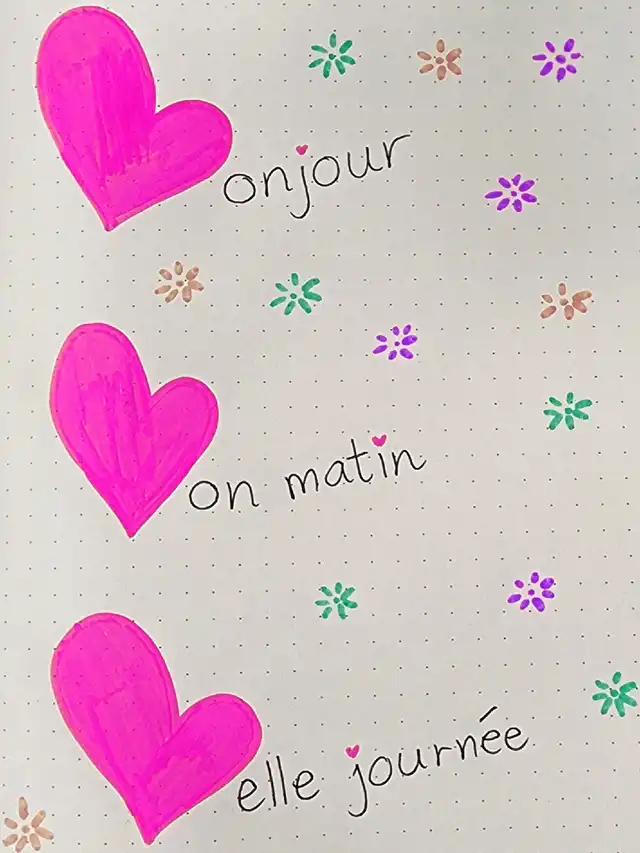 onjour
on matin
elle journée